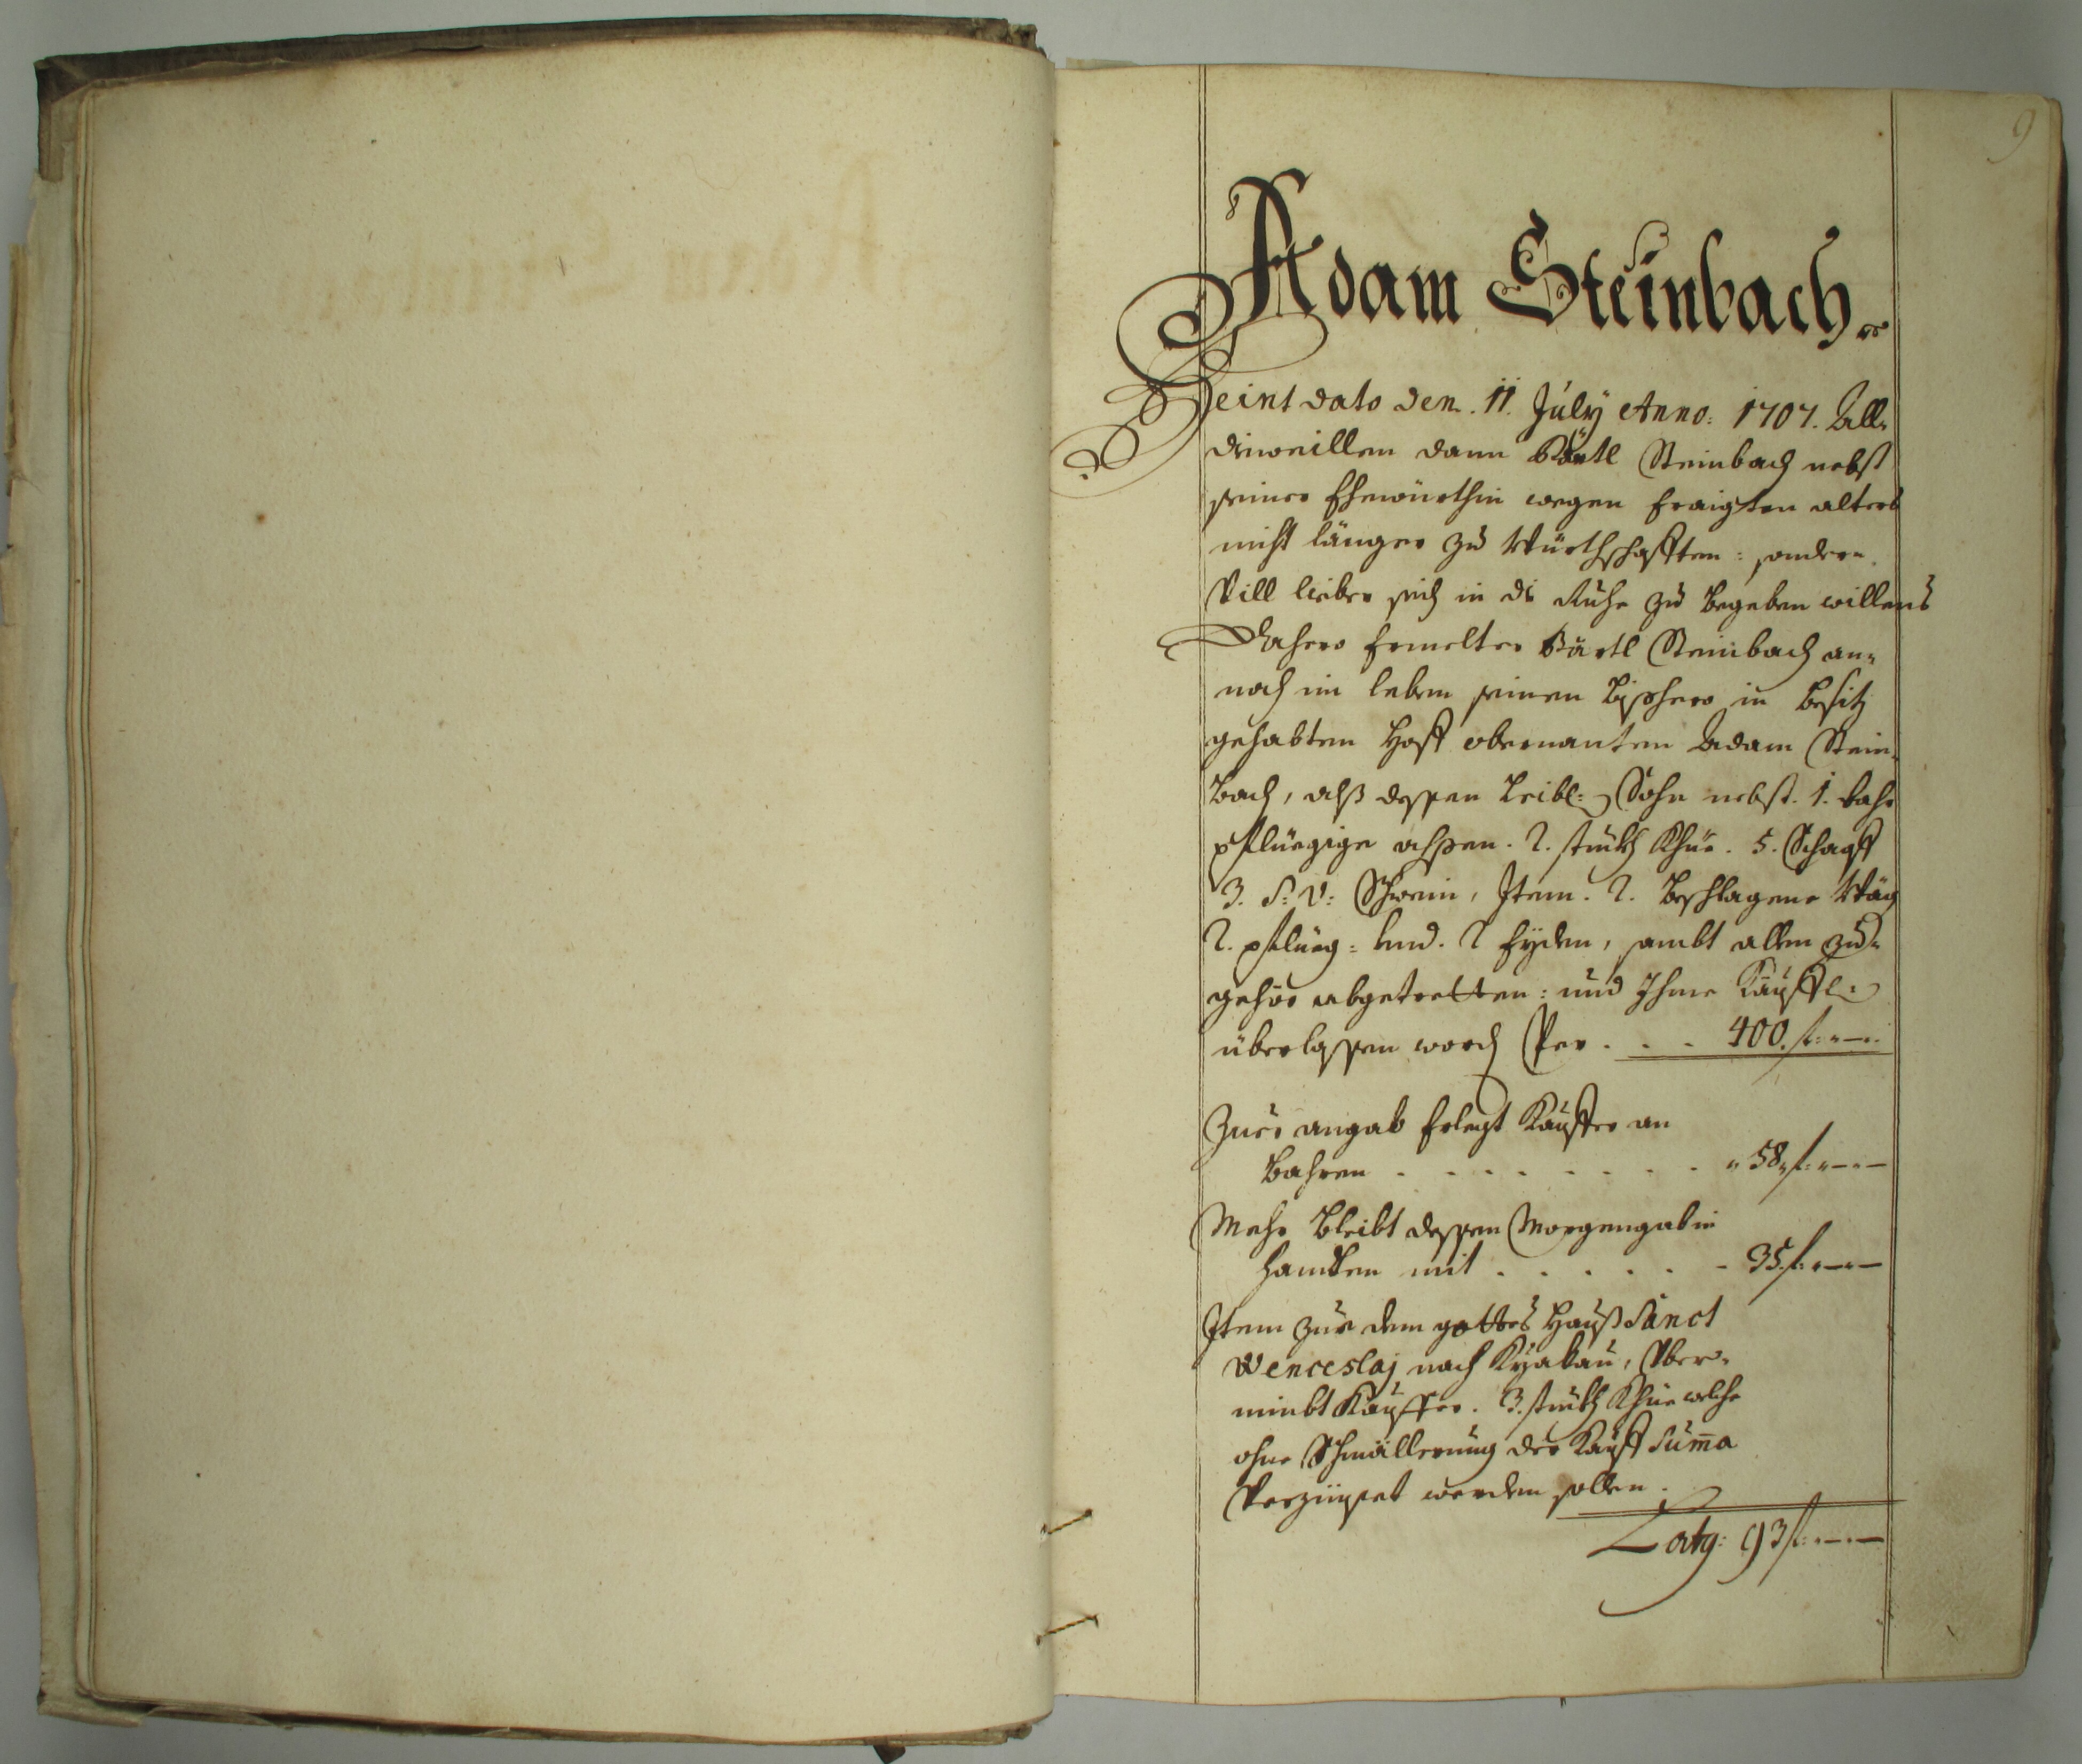 9
Adam Steinbach.
Heint dato den. 11. July Anno: 1707. All-
dieweillen dann Bärtl Steinbach nebst
seiner Ehewürthin wegen Eraigten alters
nicht länger zu Würthschafften: sondern
Vill lieber sich in di Ruhe zu begeben willens
Dahero Ermelter Bärtl Steinbach an-
noch im leben seinen bisshero in besitz
gehabten Hoff obernanten Adam Stein-
bach, alß dessen Leibl: Sohn nebst. 1. bahr
pfluegige ochsen. 2. stuckh Khüe. 5. Schaaff
3. S: V: Schwein, Item. 2. beschlagene Wäg
2. pflueg: und. 2 Eyden, sambt allen zu-
gehör abgetretten: und Ihme Kauffl:
überlassen word Per . . . 400. f: " — "
Zur angab Erlegt Kauffer an
bahren . . . . . . . " 58 " f: " — " —
Mehr bleibt dessen Morgengab in
handten mit . . . . . - 35. f: " — " —
Item zu dem gottes Hauß Sanct
Wenceslaj nach , Über-
nimbt Kauffer. 3. stuckh Khüe welche
ohne Schmällerung der Kauff Suma
Verzünset werden sollen.
Latg: 93 f: " — " —